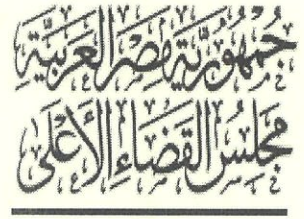 جمهورية مصر العربية
مجلس القضاء الأعلى